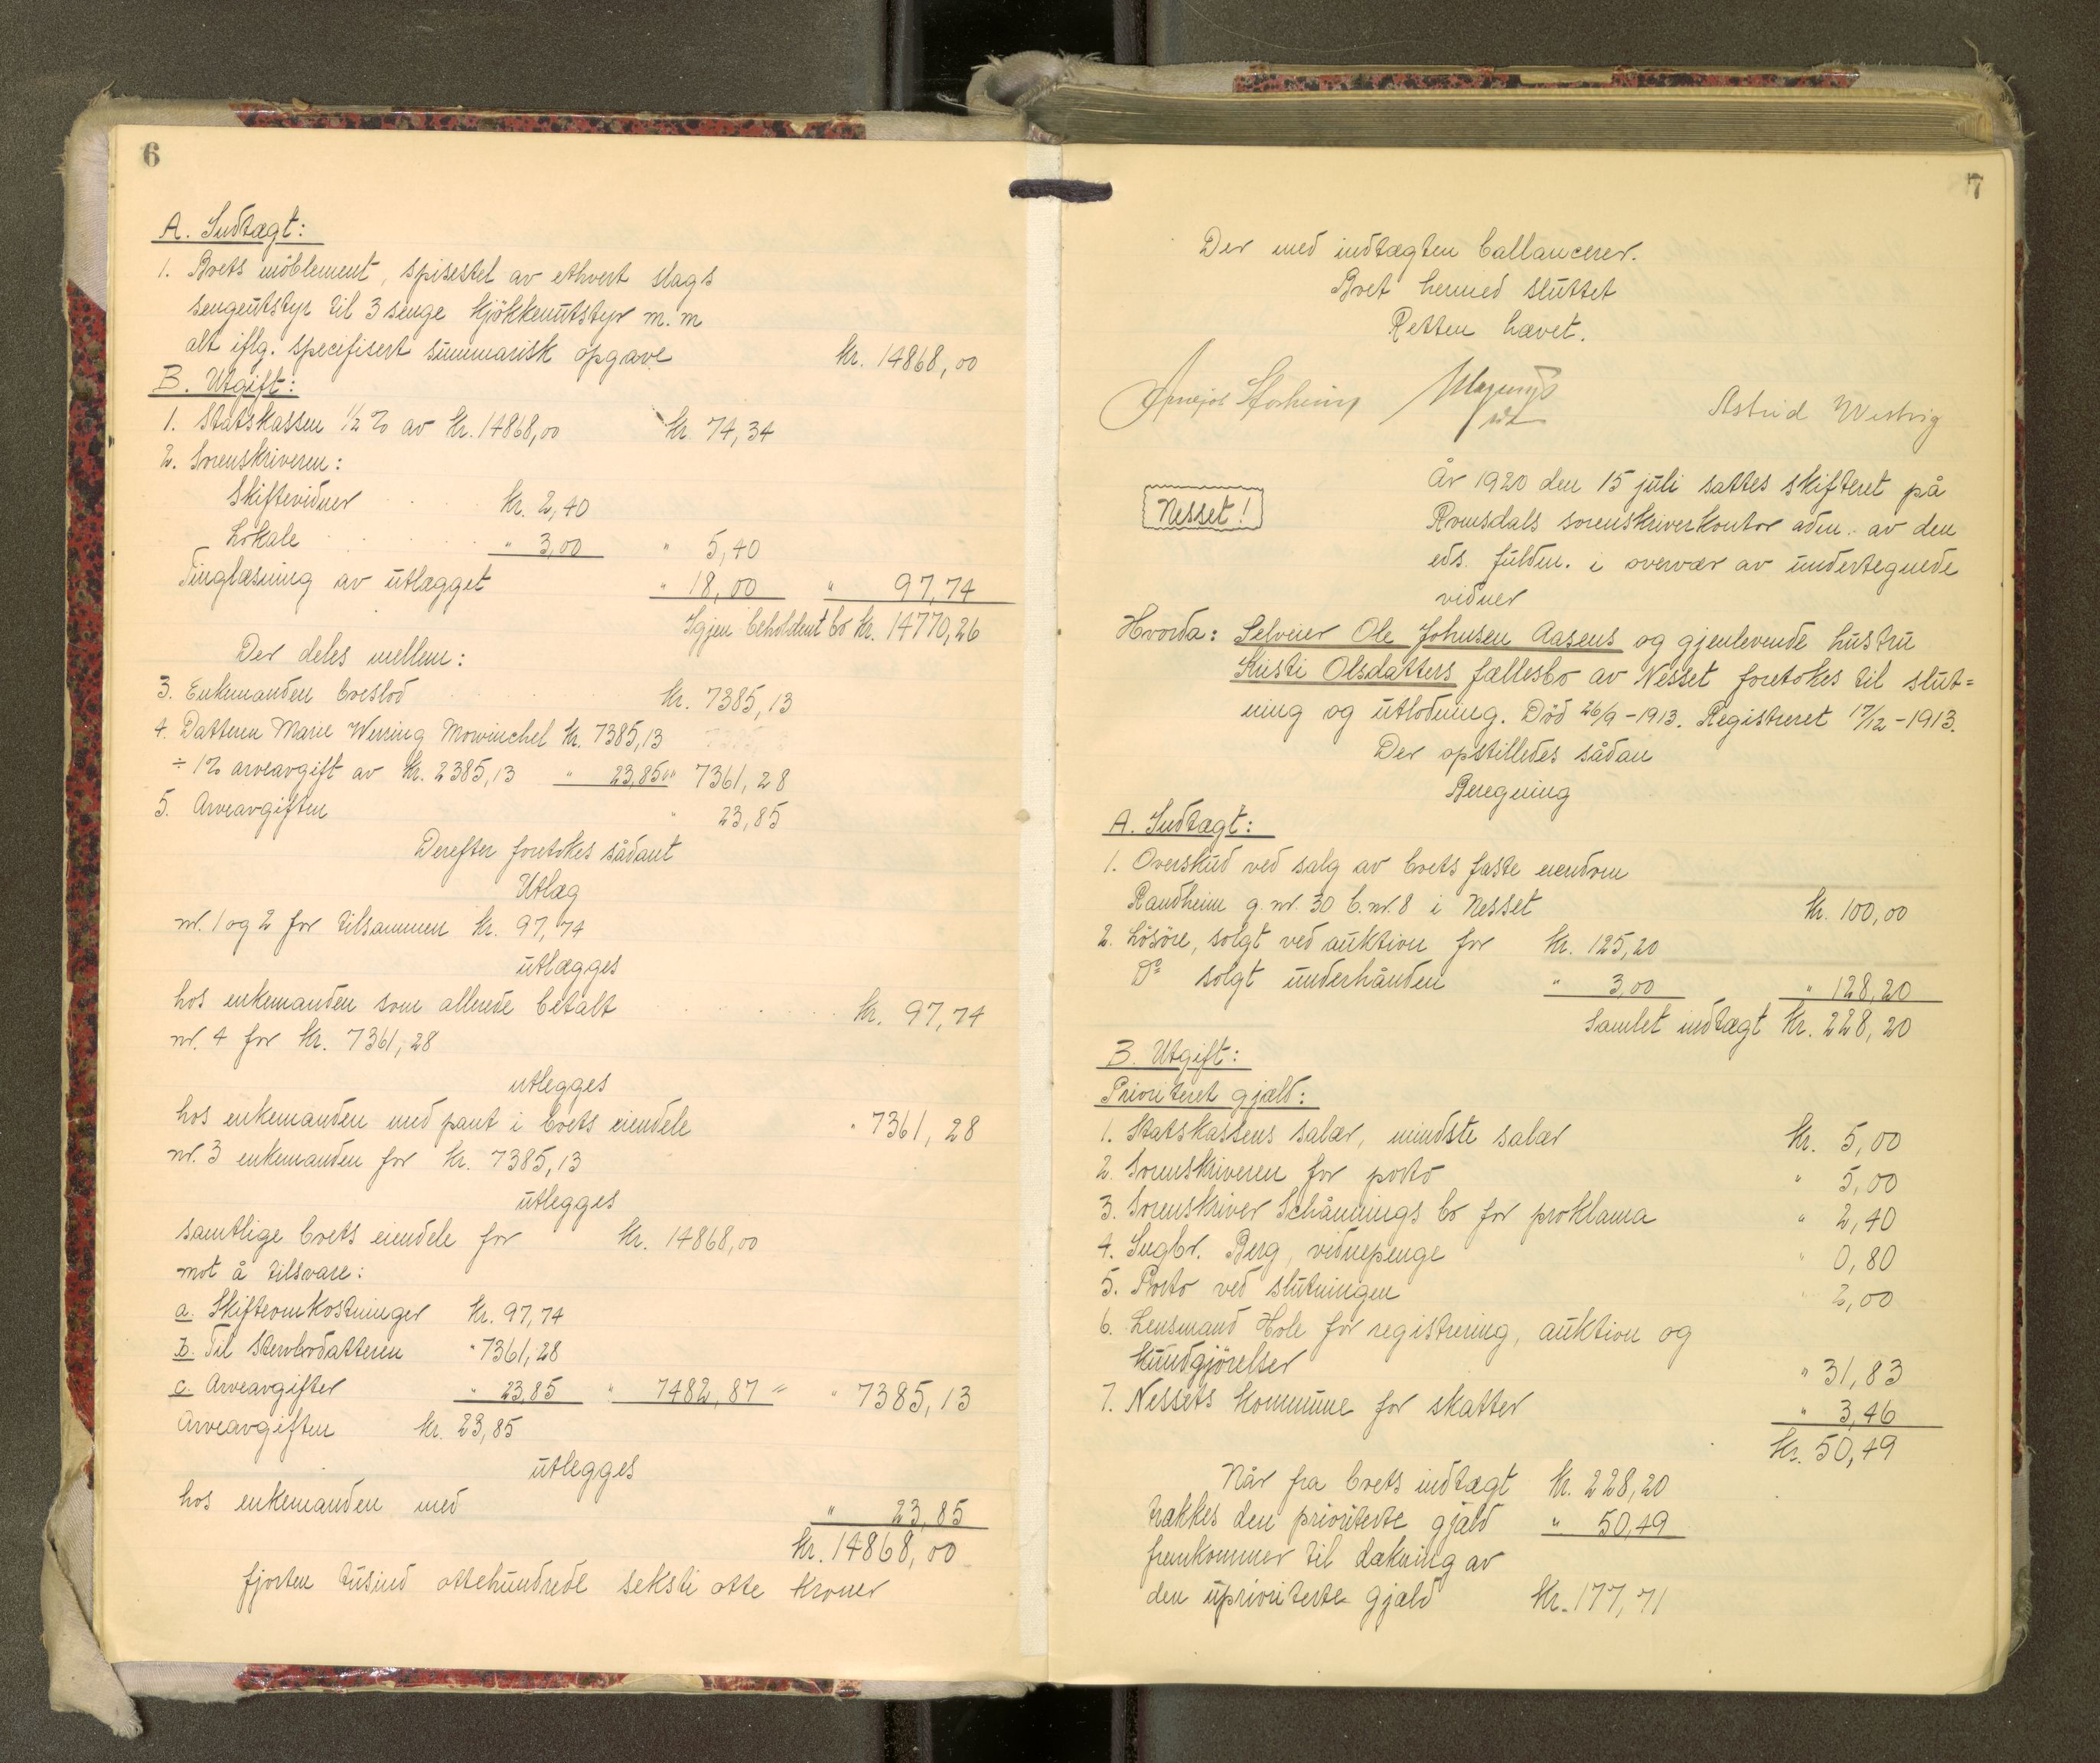 6
A. Indtægt:
1. Boets möblement, spisestel av ethvert slags
sengeutstyr til 3 senge kjökkenutstyr m.m
alt iflg. specifisert summarisk opgave kr. 14868,00
B. Utgift:
1. Statskassen 1/2 % av kr. 14868,00 kr. 74,34
2. Sorenskriveren:
Skiftevidner kr. 2,40
Lokale " 3,00 " 5,40
Tinglæsning av utlægget " 18,00 " 97,74
Igjen beholdent bo kr. 14770,26
Der deles mellem:
3. Enkemanden boeslod kr. 7385,13
4. Datteren Marie Wessing Mowinchel kr. 7385,13
÷ 1% arveavgift av kr. 2385,13 " 23,85 " " 7361,28
5. Arveavgiften " 23,85
Derefter foretokes sådant
Utlæg
nr. 1 og 2 for tilsammen kr. 97,74
utlægges
hos enkemanden som allerede betalt kr. 97,74
nr. 4 for kr. 7361,28
utlegges
hos enkemanden med pant i boets eiendele " 7361,28
nr. 3 enkemanden for kr. 7385,13
utlegges
samtlige boets eiendele for kr. 14868,00
mot å tilsvare:
a. Skifteomkostninger kr. 97,74
b. Til stervbodatteren " 7361,28
c. Arveavgifter " 23,85 " 7482,87 = " 7385,13
Arveavgiften kr. 23,85
utlegges
hos enkemanden med " 23,85
kr. 14868,00
fjorten tusind ottehundrede seksti otte kroner
7
Der med indtægten ballancerer.
Boet hermed sluttet
Retten hævet.
Astrid Westvig
Nesset!
År 1920 den 15 juli sattes skifteret på
Romsdals sorenskriverkontor adm. av den
eds. fuldm. i overvær av undertegnede
vidner
Hvorda: Selveier Ole Johnsen Aasens og gjenlevende hustru
Kristi Olsdatters fællesbo av Nesset foretokes til slut=
ning og utlodning. Död 26/9 - 1913. Registreret 17/12 - 1913.
Der opstilledes sådan
Beregning
A. Indtægt:
1. Overskud ved salg av boets faste eiendom
Randheim g. nr. 30 b. nr. 8 i Nesset kr. 100,00
2. Lösöre, solgt ved auktion for kr. 125,20
Do solgt underhånden " 3,00 " 128,20
Samlet indtægt kr. 228,20
B. Utgift:
Prioriteret gjæld:
1. Statskassens salær, mindste salær kr. 5,00
2. Sorenskriveren for porto " 5,00
3. Sorenskriver Schånnings bo for proklama " 2,40
4. Ingbr. Berg, vidnepenge " 0,80
5. Porto ved slutningen " 2,00
6. Lensmand Hole for registrering, auktion og
kundgjörelser " 31,83
7. Nessets kommune for skatter " 3,46
kr. 50,49
Når fra boets indtægt kr. 228,20
trækkes den prioriterte gjæld " 50,49
fremkommer til dækning av
den uprioriterte gjæld kr. 177,71